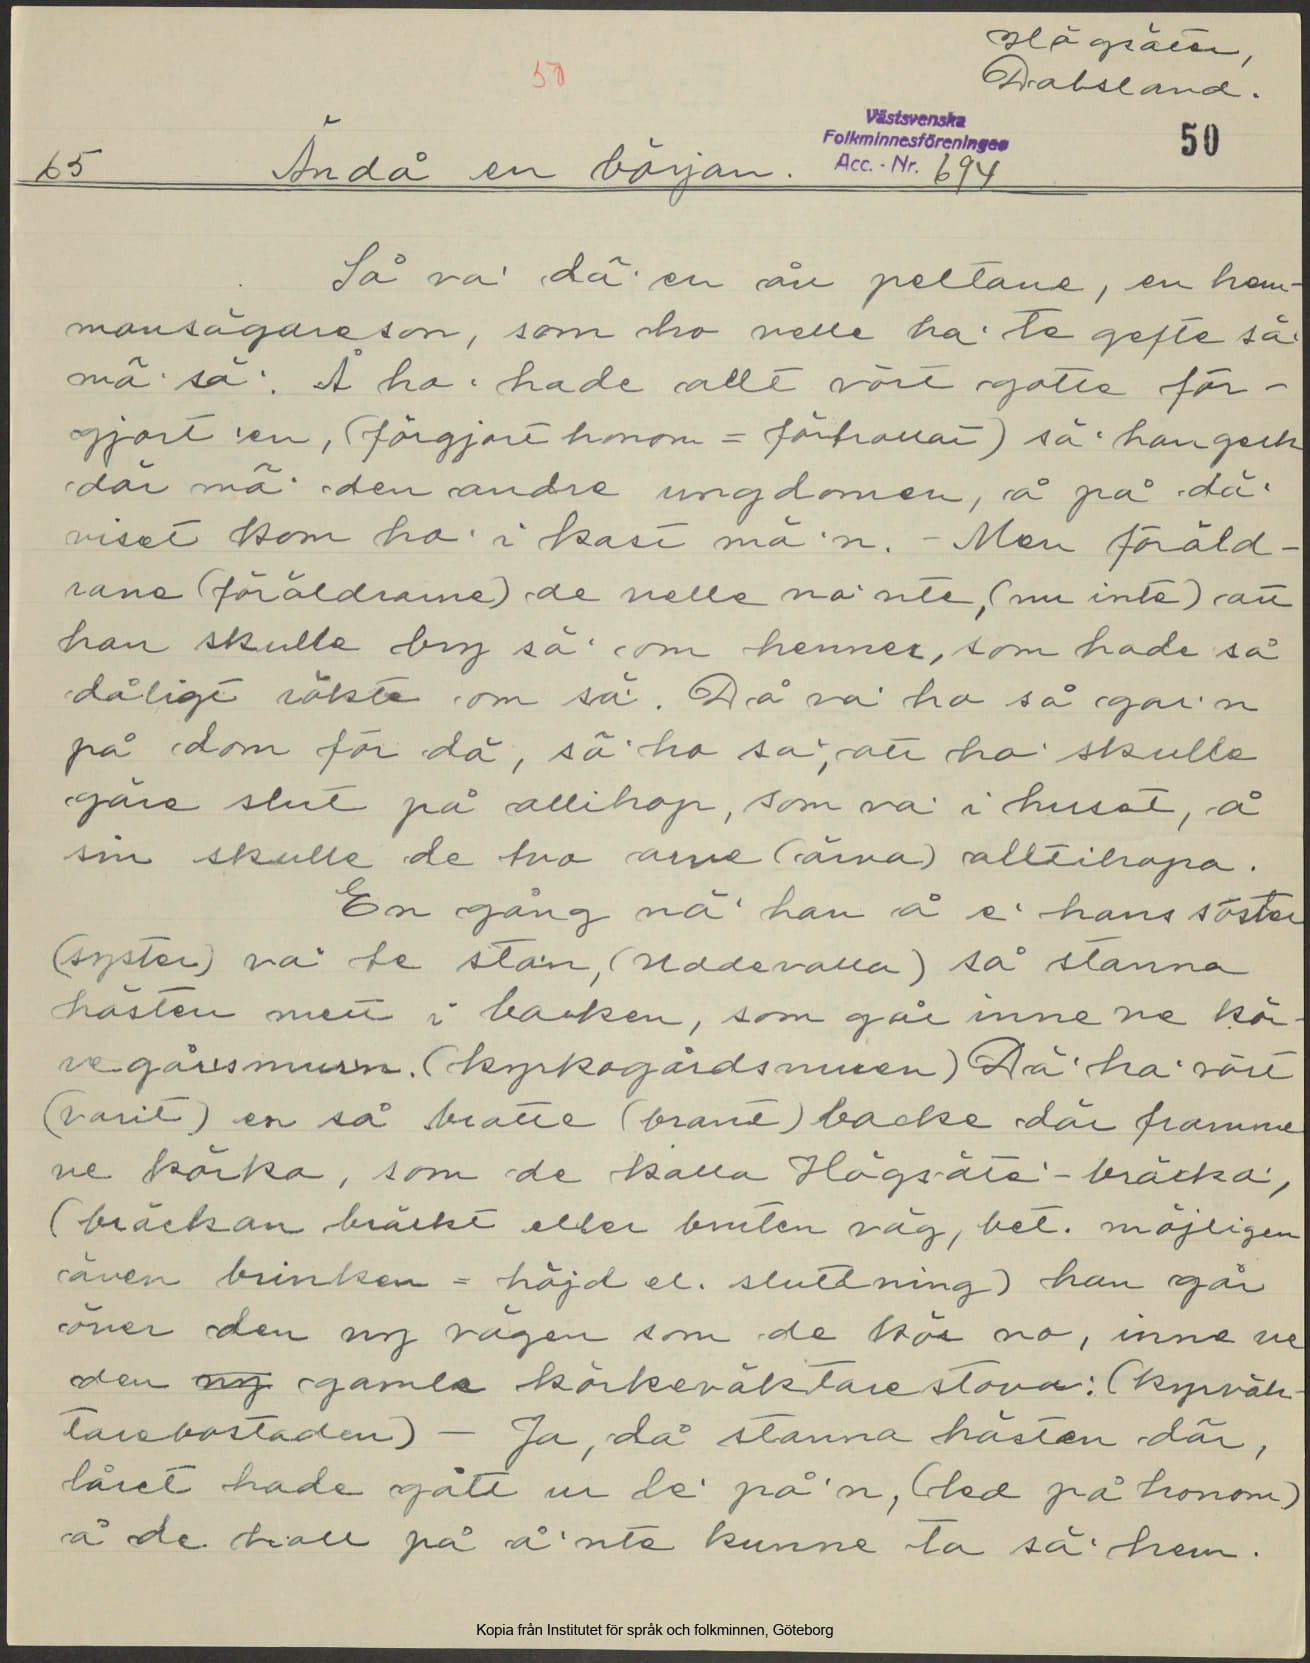 Högsäter,
Dalsland.
50
Västsvenska
Folkminnesföreningen
Acc. - Nr. 694
50
65 Ändå en början.
Så va' dä' en ån peltane, en hem-
mansägareson, som ho velle ha' te gefte sä'
mä' sä'. Å ho' hade allt vört götte för-
gjort 'en, (förgjort honom = förtrollat) sä' han geck
där mä' den andre ungdomen, å på dä'
viset kom ho' i kast mä'n. - Men föräld-
rane (föräldrarne) de velle na' nte, (nu inte) att
han skulle bry sä' om henner, som hade så
dåligt rökte om sä'. Då va' ho så gal'n
på dom för dä, sä' ho sa', att ho' skulle
göre slut på allihop, som va' i huset, å
sin skulle de two arve (ärva) alltihopa.
En gång nä' han å e' hans söster
(syster) va' te sta'n, (Uddevalla) så stanna
hästen mett i backen, som går inne ve kör-
vegårsmurn. (kyrkogårdsmuren) Dä' ha' vört
(varit) en så bratte (brant) backe där framme
ve körka, som de kalla Högsäte'-bräcka',
(bräckan bräckt eller bruten väg, bet. möjligen
även brinken = höjd el. sluttning) han går
över den ny vägen som de kör no, inne ve
den ny gamle körkeväktarestova: (kyrväk-
tarebostaden) - Ja, då stanna hästen där,
låret hade gått ur le' på'n, (led på honom)
å de höll på å'nte kunne ta sä' hem.
Kopia från Institutet för språk och folkminnen, Göteborg